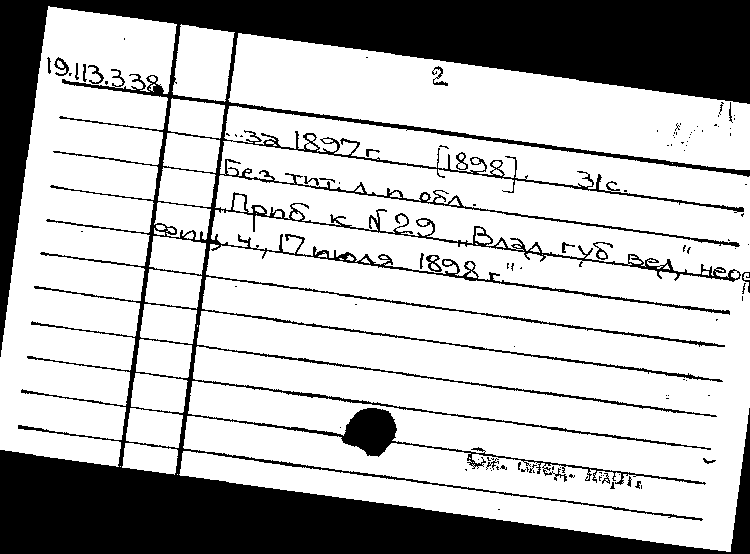 2
19.113.338
...за 1897 г. [1898]. 31 с.
Без тит. л. и обл.
„Приб. к № 29 „Влад. губ. вед.“ неоф
фиц. ч., 17 июля 1898 г.“
См. след. карт.